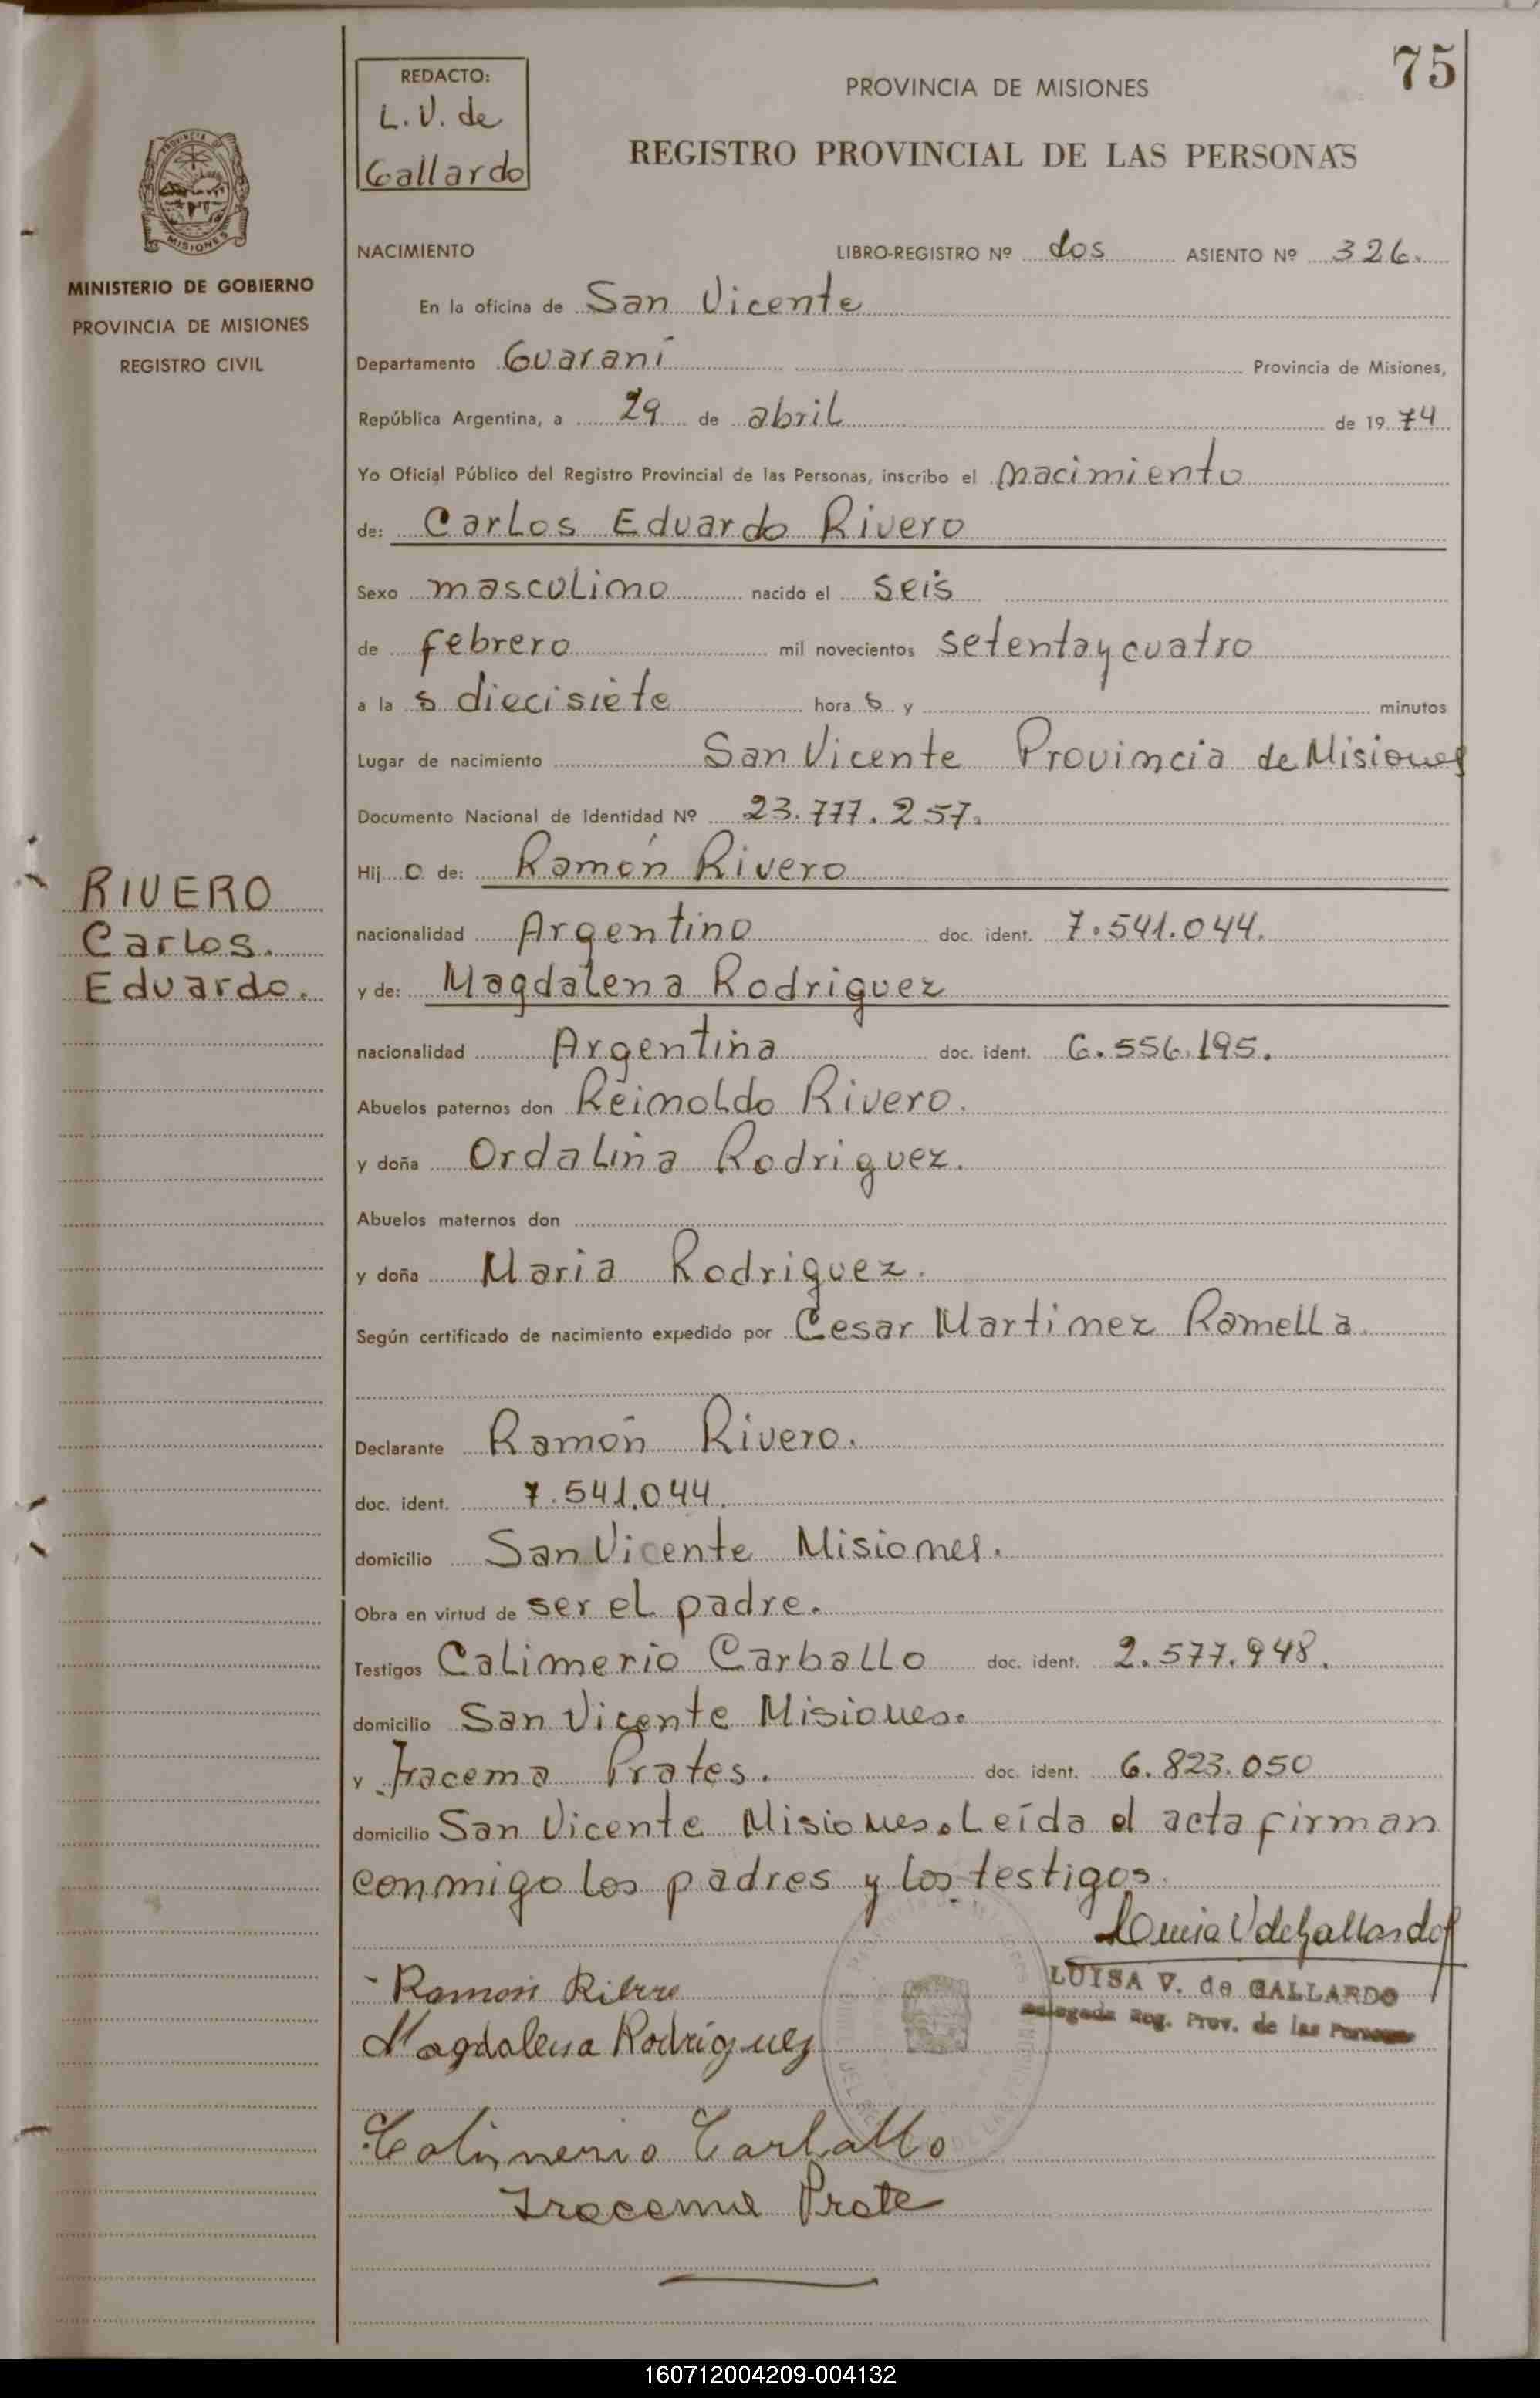 75
REDACTO:
L. V. de
Gallardo
PROVINCIA DE MISIONES
REGISTRO PROVINCIAL DE LAS PERSONAS
MISIONES
MINISTERIO DE GOBIERNO
PROVINCIA DE MISIONES
REGISTRO CIVIL
NACIMIENTO LIBRO-REGISTRO Nº dos ASIENTO Nº 326.
En la oficina de San Vicente
Departamento Guaraní Provincia de Misiones,
República Argentina, a 29 de abril de 1974
Yo Oficial Público del Registro Provincial de las Personas, inscribo el nacimiento
de: Carlos Eduardo Rivero
Sexo masculino nacido el seis
de febrero mil novecientos setenta y cuatro
a la s diecisiete hora s y minutos
Lugar de nacimiento San Vicente Provincia de Misiones
Documento Nacional de Identidad Nº 23.777.257.
Hij o de: Ramón Rivero
RIVERO
Carlos.
Eduardo.
nacionalidad Argentino doc. ident. 7.541.044.
y de: Magdalena Rodriguez
nacionalidad Argentina doc. ident. 6.556.195.
Abuelos paternos don Reinoldo Rivero.
y doña Ordalina Rodriguez.
Abuelos maternos don
y doña Maria Rodriguez.
Según certificado de nacimiento expedido por Cesar Martinez Ramella.
Declarante Ramón Rivero.
doc. ident. 7.541.044.
domicilio San Vicente Misiones.
Obra en virtud de ser el padre.
Testigos Calimerio Carballo doc. ident. 2.577.948.
domicilio San Vicente Misiones.
y Iracema Prates. doc. ident. 6.823.050
domicilio San Vicente Misiones. Leída el acta firman
conmigo los padres y los testigos.
Luisa V de Gallardo
LUISA V. de GALLARDO
Delegada Reg. Prov. de las Personas
Ramón
Magdalena Rodriguez
Calimerio Carballo
Iracema Prate
160712004209-004132